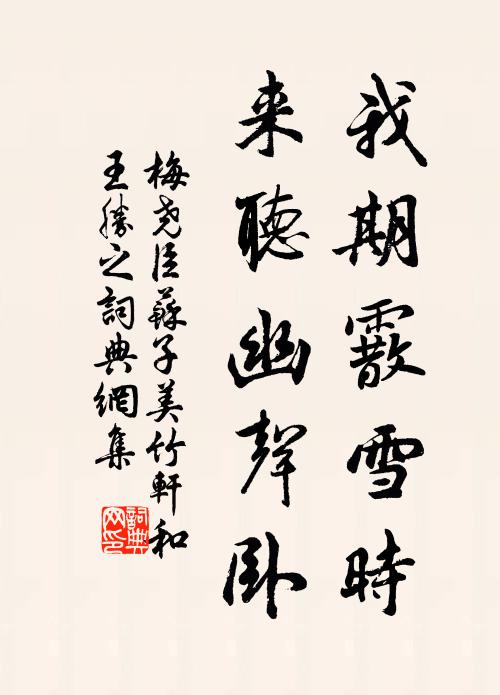 我期霰雪時
来聽幽聲卧
梅尧臣蘇子美竹軒和
王勝之詞典網集
詞典
网印